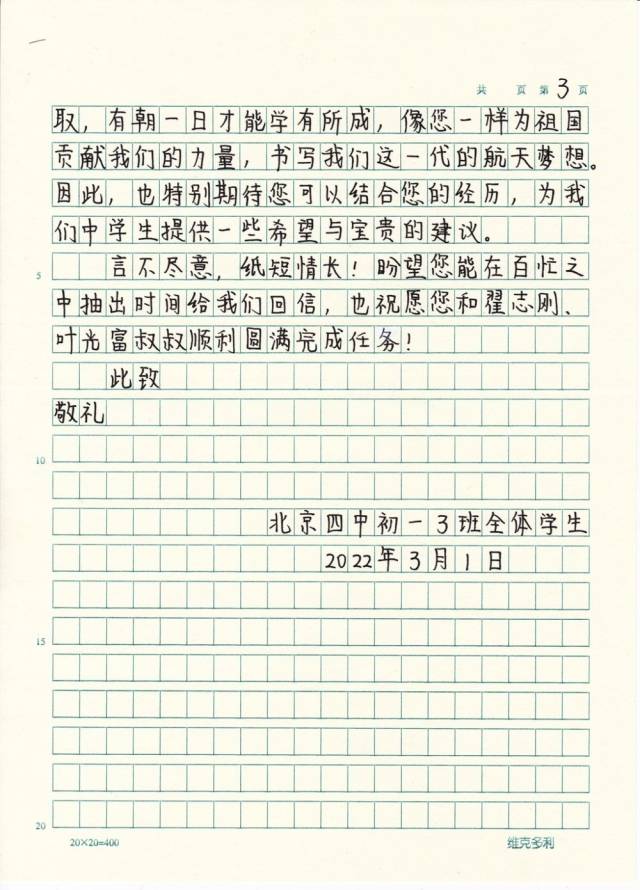 共 页 第 3 页
取，有朝一日才能学有所成，像您一样为祖国
贡献我们的力量，书写我们这一代的航天梦想。
因此，也特别期待您可以结合您的经历，为我
们中学生提供一些希望与宝贵的建议。
5 言不尽意，纸短情长！盼望您能在百忙之
中抽出时间给我们回信，也祝愿您和翟志刚、
叶光富叔叔顺利圆满完成任务！
此致
敬礼
10
北京四中初一3班全体学生
2022年3月1日
15
20
20×20=400 维克多利